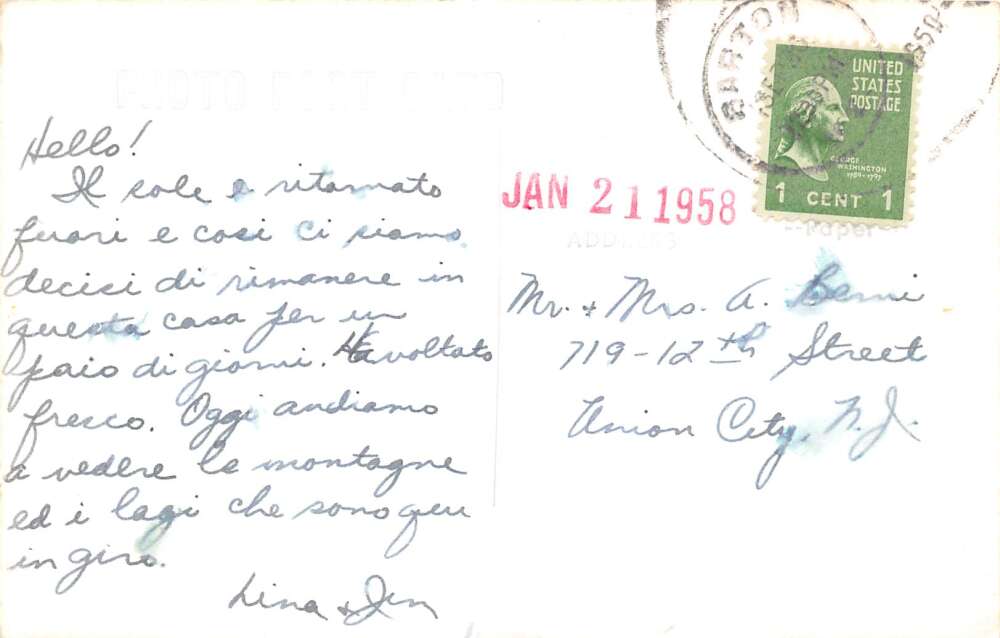 PHOTO POST CARD
BARTON
1950
UNITED
STATES
POSTAGE
GEORGE
WASHINGTON
1789-1797
1 CENT 1
JAN 21 1958
ADDRESS
Paper
Hello!
Il sole e ritornato
fuori e cosi ci siamo
decisi di rimanere in
questa casa per un
paio di giorni. voltato
fresco. Oggi andiamo
a vedere le montagne
ed i lagi che sono qui
in giro.
Lina & Jim
Mr. + Mrs. A. Berni
719-12th Street
Union City, N.J.